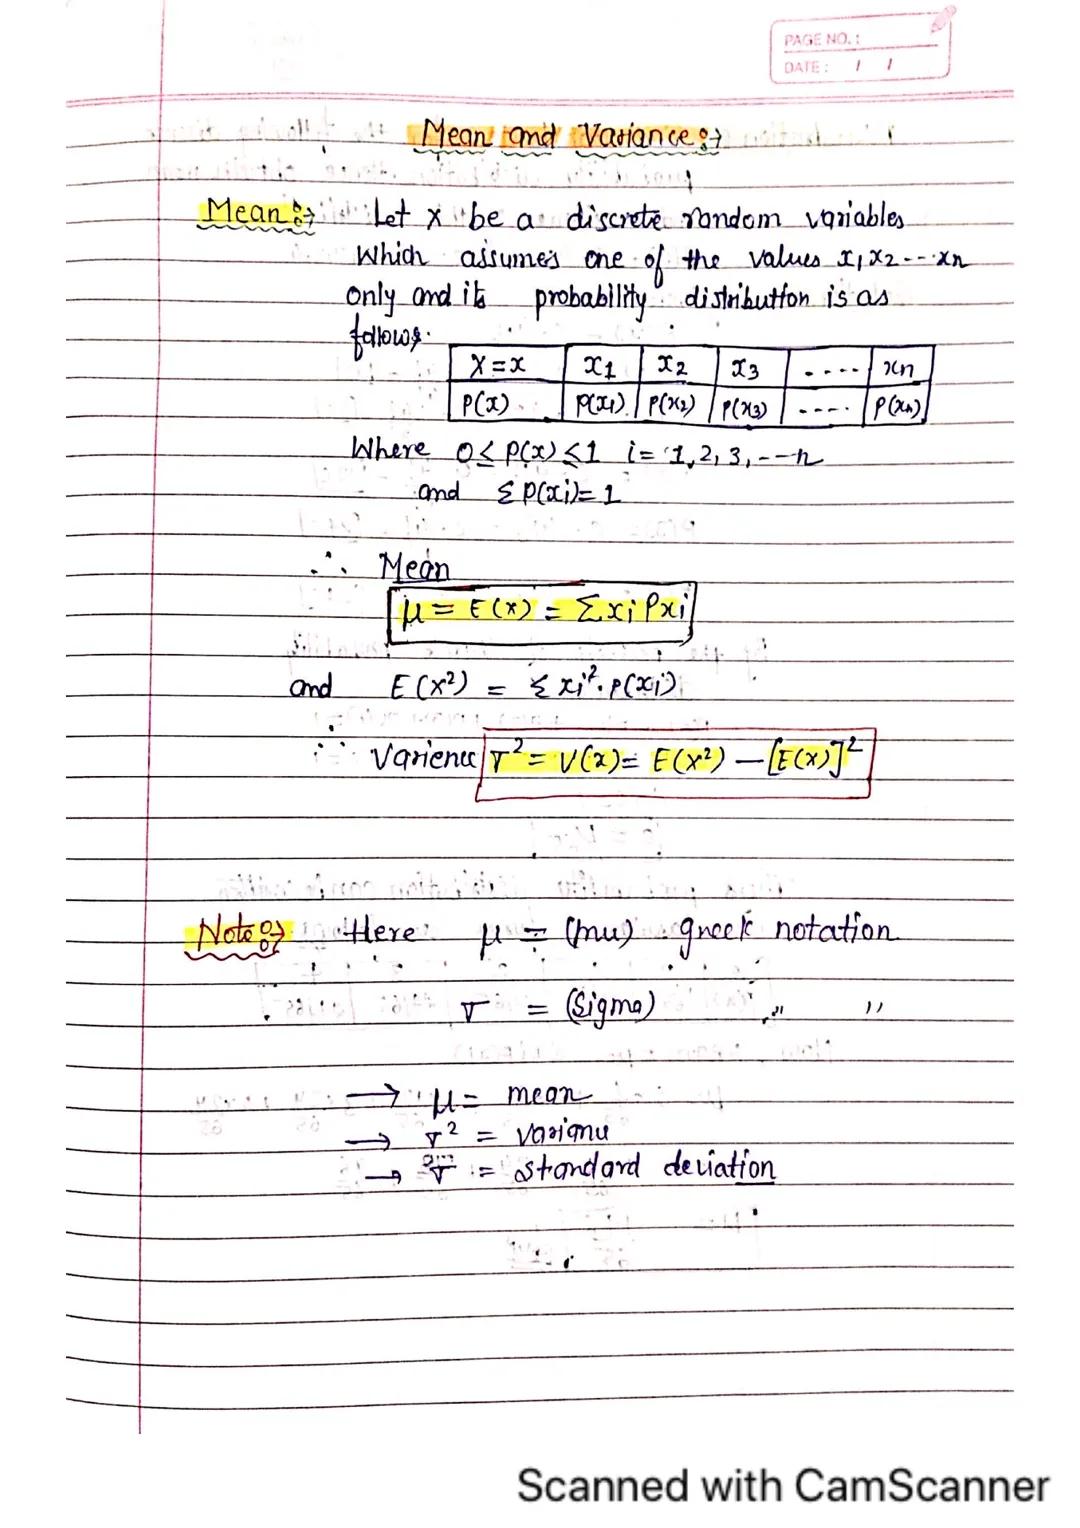 PAGE NO.:
DATE: / /
Mean and Variance :→
Mean :→ Let X be a discrete random variables
Which assumes one of the values x1, x2 --- xn
only and its probability distribution is as
follows.
X=x x1 x2 x3 .... xn
P(x) P(x1) P(x2) P(x3) .... P(xn)
Where 0≤P(x)≤1 i= 1,2,3,---n
and ΣP(xi)=1
∴ Mean
μ = E(x) = Σxi Pxi
and E(X²) = Σxi².P(xi)
∴ Varience σ² = V(x)= E(X²) – [E(x)]²
Note :→ Here μ = (mu) greek notation
σ = (Sigma) ,, ,,
→ μ = mean
→ σ² = variance
→ σ = standard deviation
Scanned with CamScanner